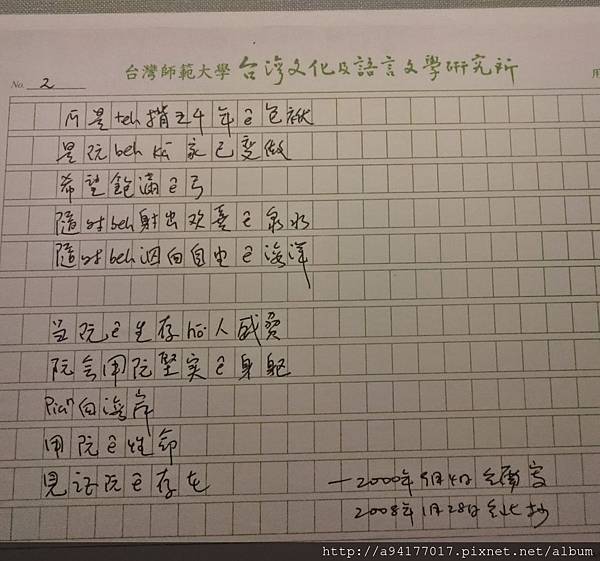 No. 2
台灣師範大學 台灣文化及語言文學研究所
用
毋是teh揹五千年ê包袱
是阮beh kā家己變做
希望飽滿ê弓
隨时beh射出欢喜ê泉水
隨时beh泅向自由ê海洋
当阮ê生存hō͘人威脅
阮会用阮堅实ê身軀
Piàⁿ向海岸
用阮ê性命
見证阮ê存在
—2000年9月4日台南寫
2008年1月28日台北抄
http://a94177017.pixnet.net/album